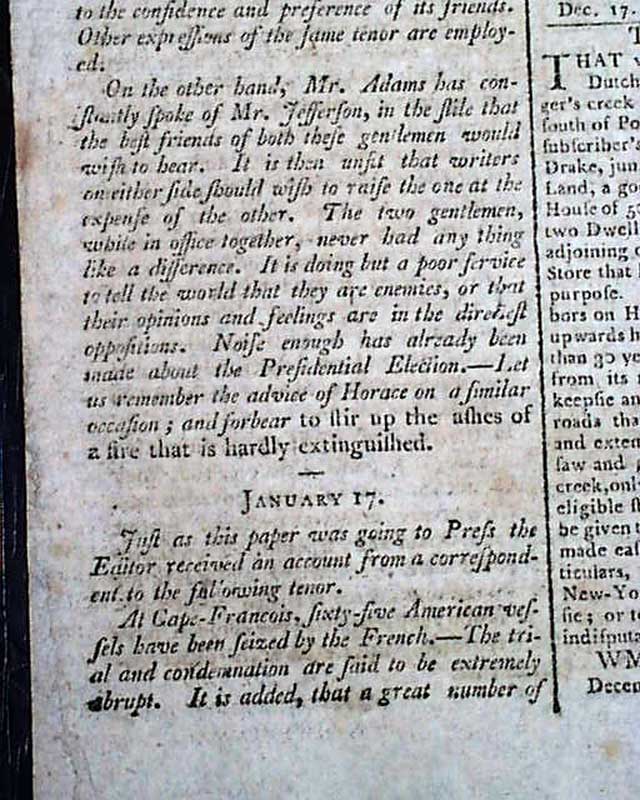 to the confidence and preference of its friends.
Other expreſſions of the ſame tenor are employ-
ed.
On the other hand, Mr. Adams has con-
ſtantly ſpoke of Mr. Jefferſon, in the ſtile that
the beſt friends of both theſe gentlemen would
wiſh to hear. It is then unfit that writers
on either ſide ſhould wiſh to raiſe the one at the
expenſe of the other. The two gentlemen,
while in office together, never had any thing
like a difference. It is doing but a poor ſervice
to tell the world that they are enemies, or that
their opinions and feelings are in the directeſt
oppoſitions. Noiſe enough has already been
made about the Preſidential Election.—Let
us remember the advice of Horace on a ſimilar
occaſion ; and forbear to ſtir up the aſhes of
a fire that is hardly extinguiſhed.
JANUARY 17.
Juſt as this paper was going to Preſs the
Editor received an account from a correſpond-
ent to the following tenor.
At Cape-Francois, ſixty-five American veſ-
ſels have been ſeized by the French.—The tri-
al and condemnation are ſaid to be extremely
abrupt. It is added, that a great number of
Dec. 17.
THAT
Dutch
ger's creek
ſouth of Po
ſubſcriber's
Drake, jun
Land, a go
Houſe of
two Dwell
adjoining
Store that
purpoſe.
bors on H
upwards
than 30 ye
from its
keepſie an
roads tha
and exten
ſaw and
creek, onl
eligible
be given
made eaſ
ticulars,
New-Yo
ſie ; or
indiſputa
WM
Decem